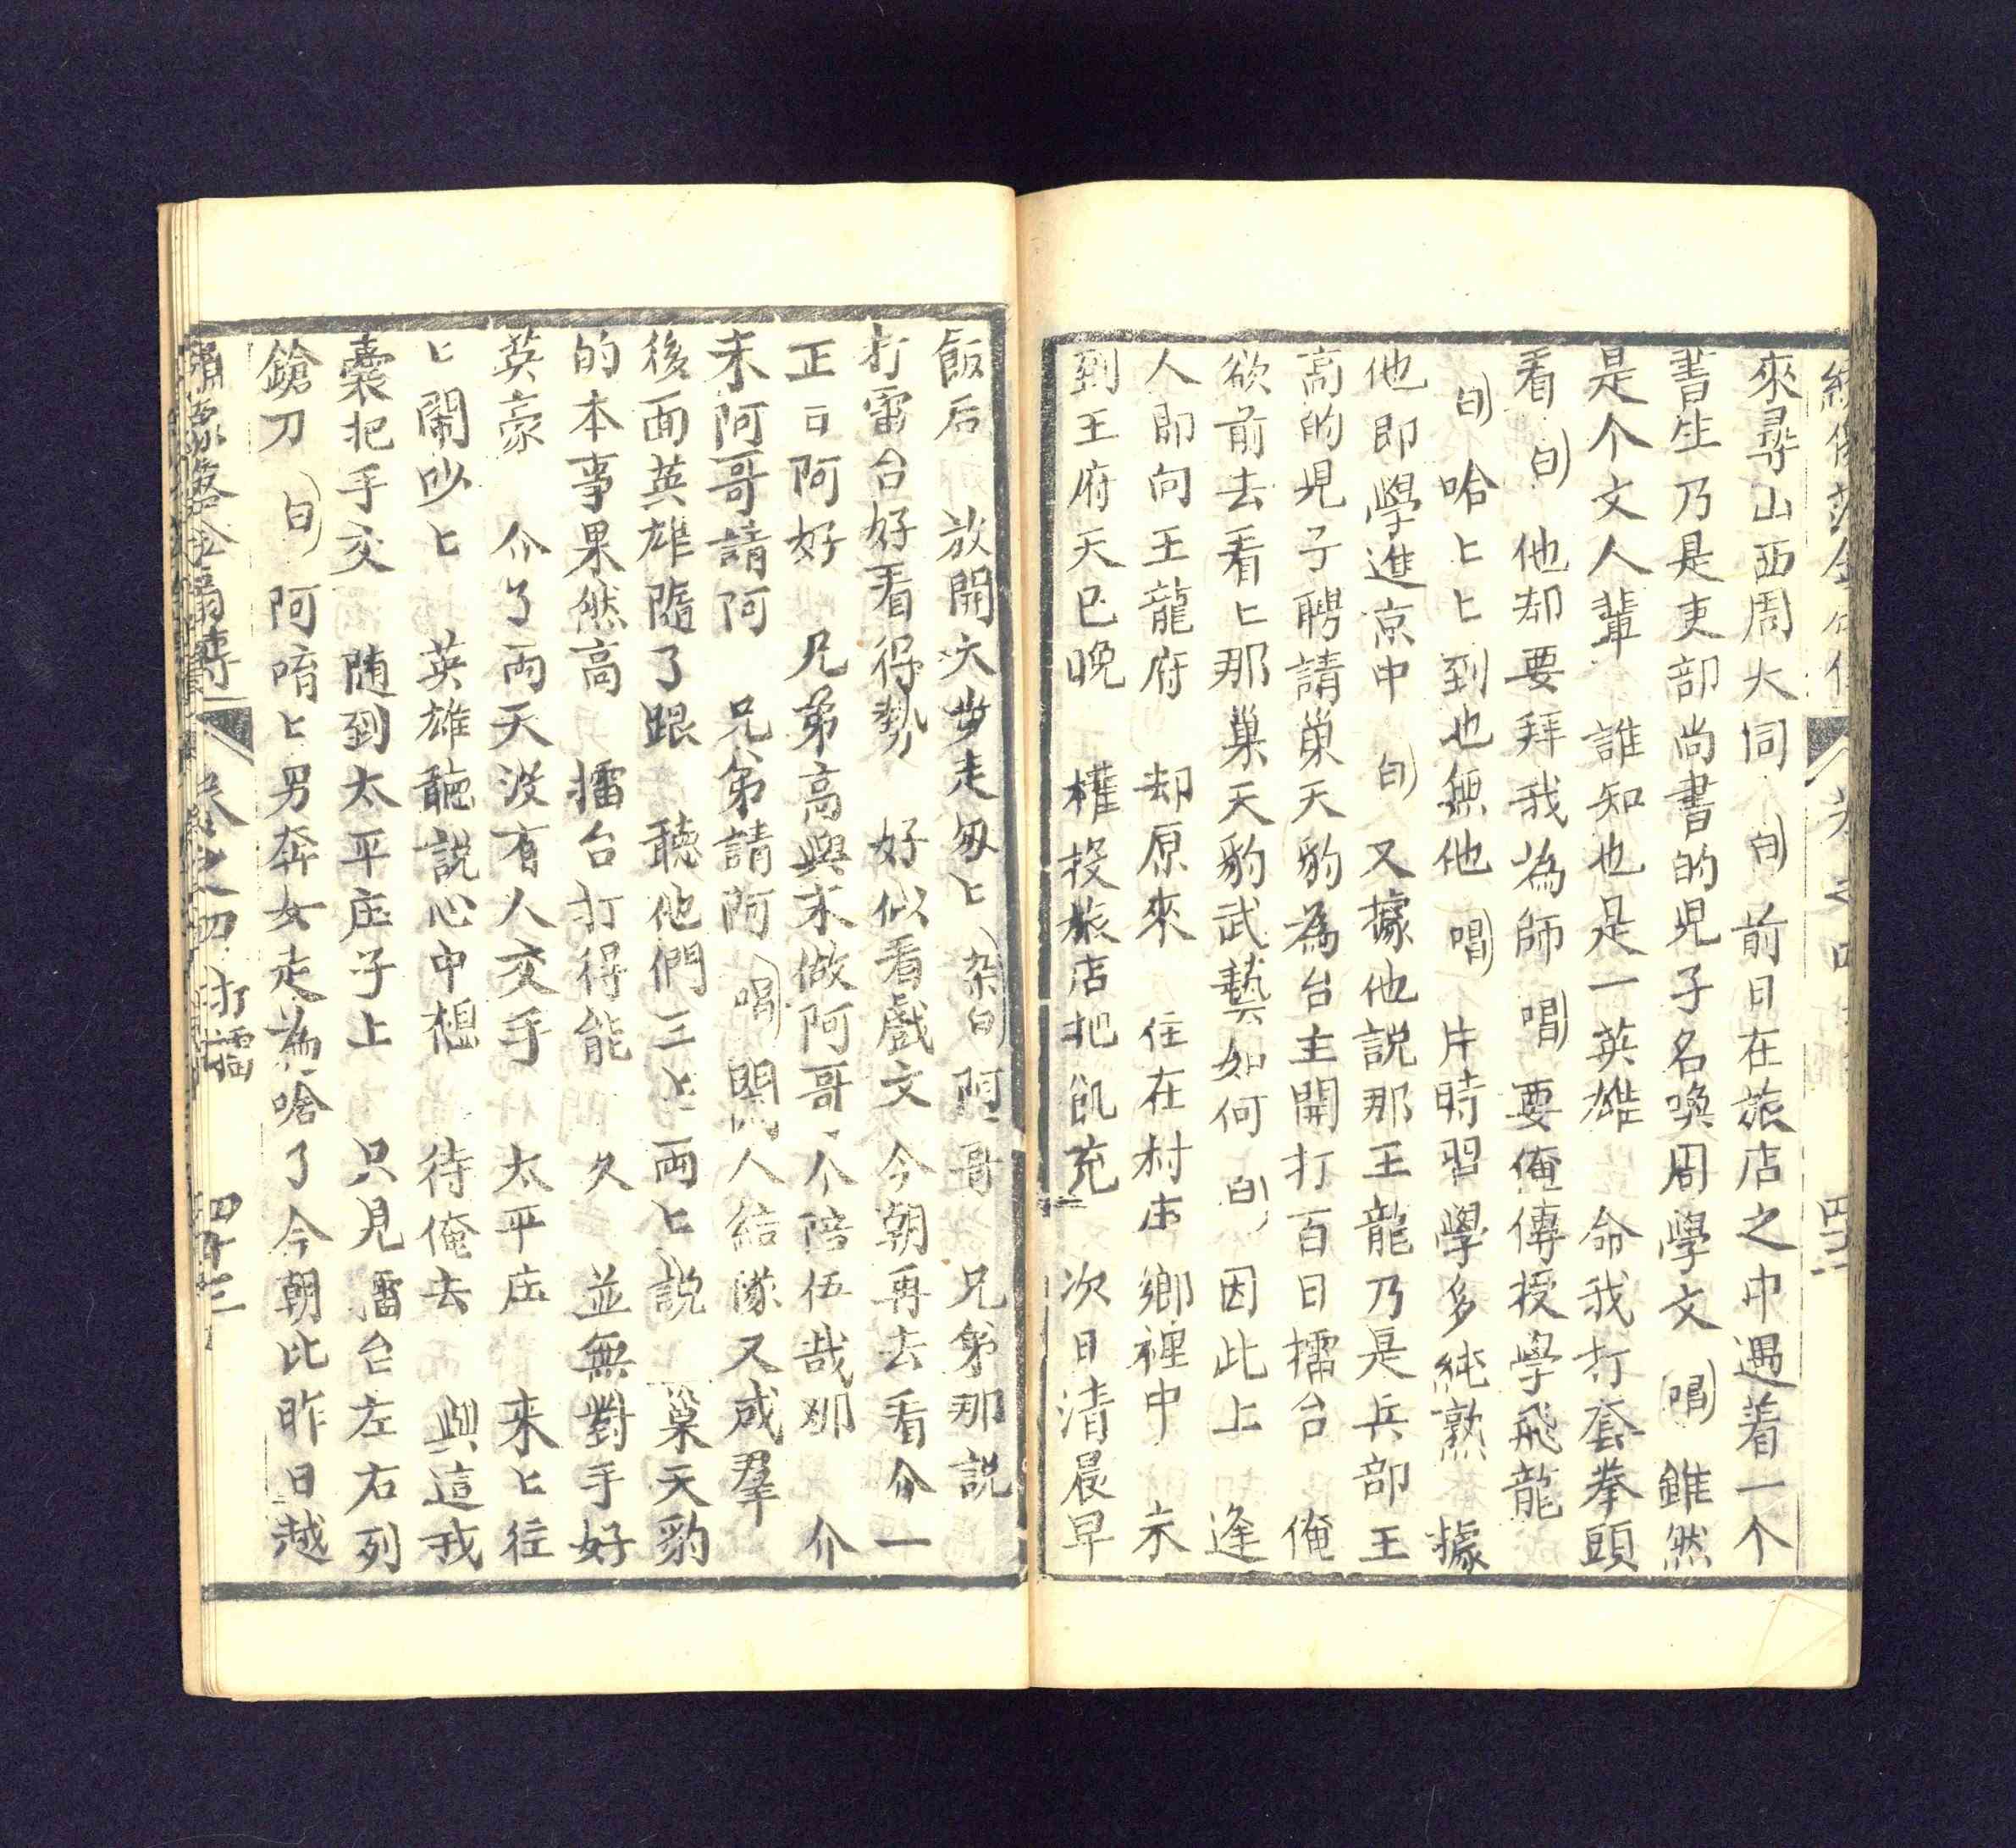 來尋山西周大同 白 前日在旅店之中遇着一个
書生乃是吏部尚書的児子名喚周學文 唱 錐然
是个文人輩 誰知也是一英雄 命我打套拳頭
看 白 他却要拜我為師 唱 要俺傳授學飛龍
白 哈匕匕到也無他 唱 片時習學多純熟 據
他即學進京中 白 又據他説那王龍乃是兵部王
高的児子聘請巢天豹為台主開打百日擂台 俺
欲前去看匕那巢天豹武藝如何 白 因此上 逢
人即向王龍府 却原來 住在村庄鄉裡中 未
到王府天已晚 權投旅店把飢充 次日清晨早
飯后 放開大步走匆匕 杂白 阿哥 兄弟那説
打雷台好看得勢 好似看戲文今朝再去看介一
正日阿好 兄弟高興末做阿哥个陪伍哉那 介
末阿哥請阿 兄弟請阿 唱 閑人結隊又成羣
後面英雄隨了跟 聽他們三匕両匕説 巢天豹
的本事果然高 擂台打得能 久 並無對手好
英豪 介了両天没有人交手 太平庄 来匕往
匕鬧吵匕 英雄聽説心中想 待俺去 與這我
囊把手交 随到太平庄子上 只見擂台左右列
鎗刀 白 阿唷匕男奔女走為啥了今朝比昨日越
卷之四 打擂 四十三